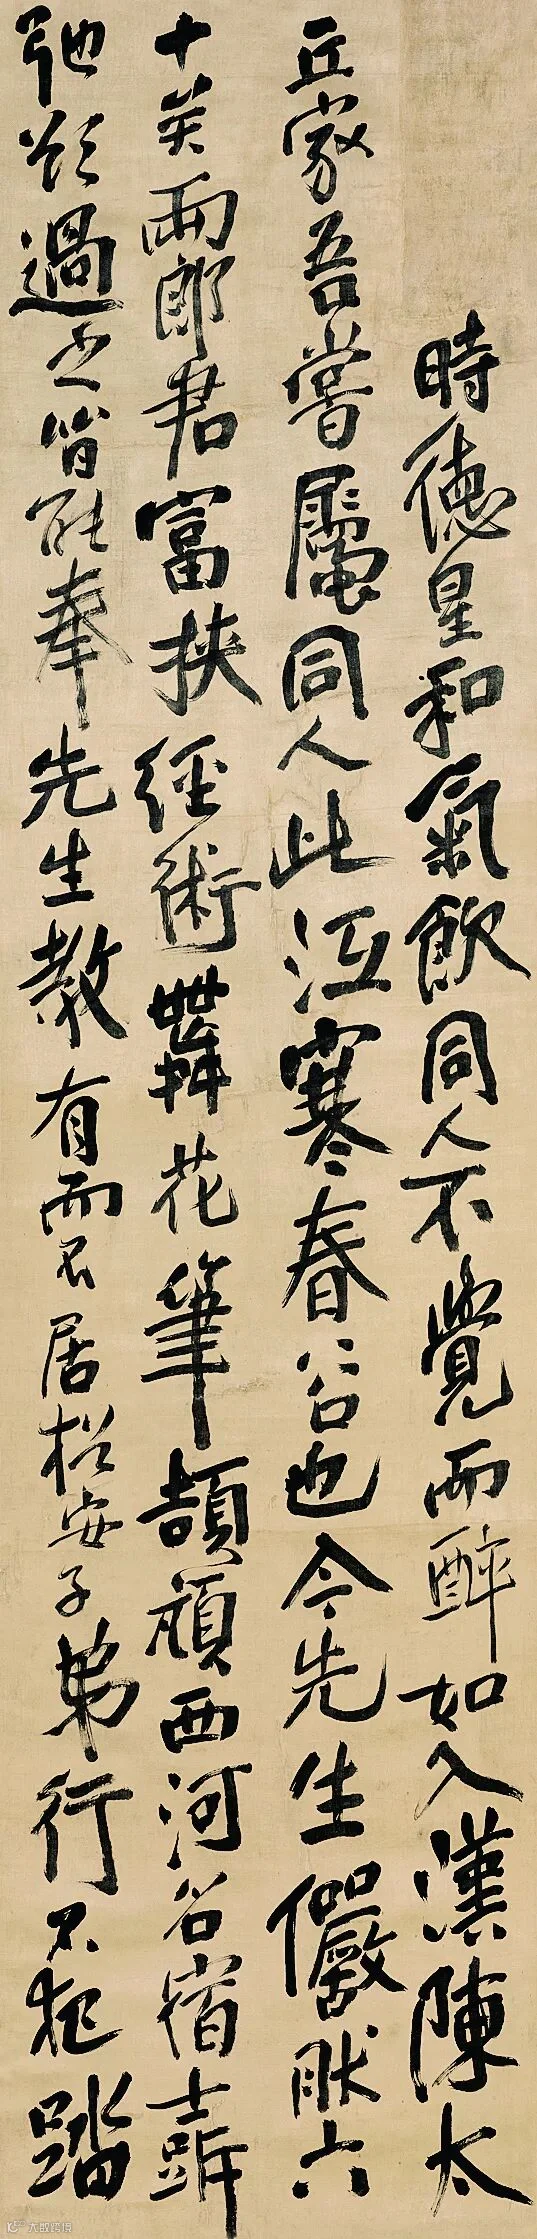 時德星和氣飲同人不覺而醉如入漢陳太
丘家吾嘗屬同人此沍寒春谷也今先生儼然六
十矣兩郎君富挾經術舞花筆頡頏西河名宿士
弛顏過之皆能奉先生教有而不居松安子弟行不犯
大数跨境